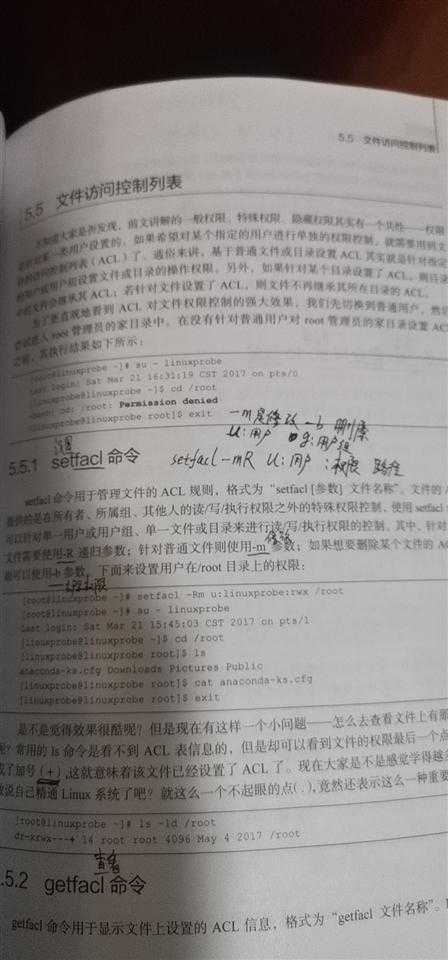 5.5 文件访问控制列表
5.5 文件访问控制列表
不知道大家是否发现，前文讲解的一般权限、特殊权限、隐藏权限其实有一个共性——权限
是针对某一类用户设置的。如果希望对某个指定的用户进行单独的权限控制，就需要用到文
件的访问控制列表（ACL）了。通俗来讲，基于普通文件或目录设置 ACL 其实就是针对指定
的用户或用户组设置文件或目录的操作权限。另外，如果针对某个目录设置了 ACL，则目录
中的文件会继承其 ACL；若针对文件设置了 ACL，则文件不再继承其所在目录的 ACL。
为了更直观地看到 ACL 对文件权限控制的强大效果，我们先切换到普通用户，然后
尝试进入 root 管理员的家目录中。在没有针对普通用户对 root 管理员的家目录设置 AC
之前，其执行结果如下所示：
[root@linuxprobe ~]# su - linuxprobe
Last login: Sat Mar 21 16:31:19 CST 2017 on pts/0
[linuxprobe@linuxprobe ~]$ cd /root
-bash: cd: /root: Permission denied
[linuxprobe@linuxprobe root]$ exit
-m 是修改 -b 删除
u：用户 g：用户组
设置
5.5.1 setfacl 命令
setfacl -mR u：用户：权限 路径
setfacl 命令用于管理文件的 ACL 规则，格式为“setfacl [参数] 文件名称”。文件的 A
提供的是在所有者、所属组、其他人的读/写/执行权限之外的特殊权限控制，使用 setfacl
可以针对单一用户或用户组、单一文件或目录来进行读/写/执行权限的控制。其中，针对
文件需要使用-R 递归参数；针对普通文件则使用-m 参数；如果想要删除某个文件的 AC
能可以使用-b 参数。下面来设置用户在/root 目录上的权限：
[root@linuxprobe ~]# setfacl -Rm u:linuxprobe:rwx /root
[root@linuxprobe ~]# su - linuxprobe
Last login: Sat Mar 21 15:45:03 CST 2017 on pts/1
[linuxprobe@linuxprobe ~]$ cd /root
[linuxprobe@linuxprobe root]$ ls
anaconda-ks.cfg Downloads Pictures Public
[linuxprobe@linuxprobe root]$ cat anaconda-ks.cfg
[linuxprobe@linuxprobe root]$ exit
是不是觉得效果很酷呢？但是现在有这样一个小问题——怎么去查看文件上有那
呢？常用的 ls 命令是看不到 ACL 表信息的，但是却可以看到文件的权限最后一个点
成了加号（+），这就意味着该文件已经设置了 ACL 了。现在大家是不是感觉学得越
敢说自己精通 Linux 系统了吧？就这么一个不起眼的点（.），竟然还表示这么一种重要
[root@linuxprobe ~]# ls -ld /root
dr-xrwx---+ 14 root root 4096 May 4 2017 /root
查看
5.5.2 getfacl 命令
getfacl 命令用于显示文件上设置的 ACL 信息，格式为“getfacl 文件名称”。